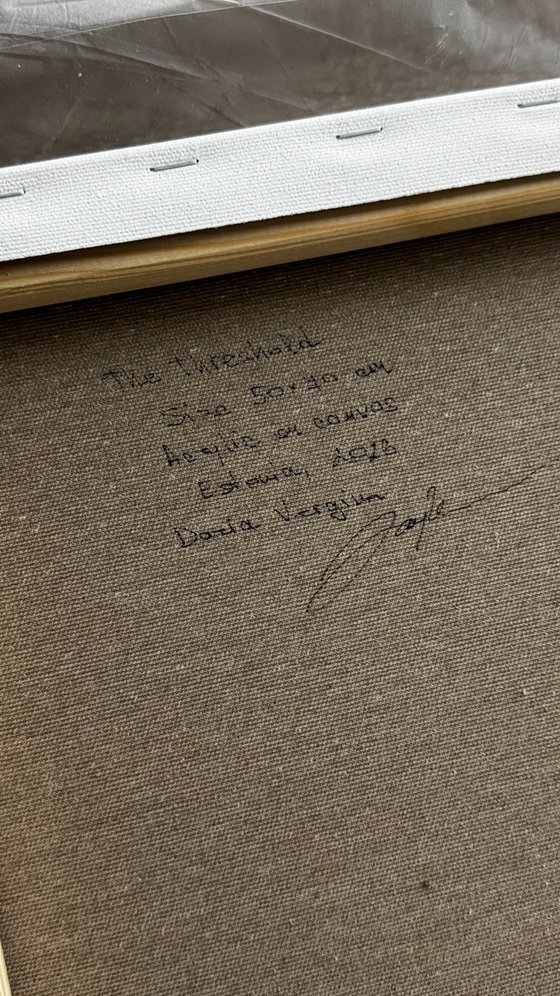 The threshold
Size 50x70 cm
Acrylic on canvas
Estonia, 2023
Daria